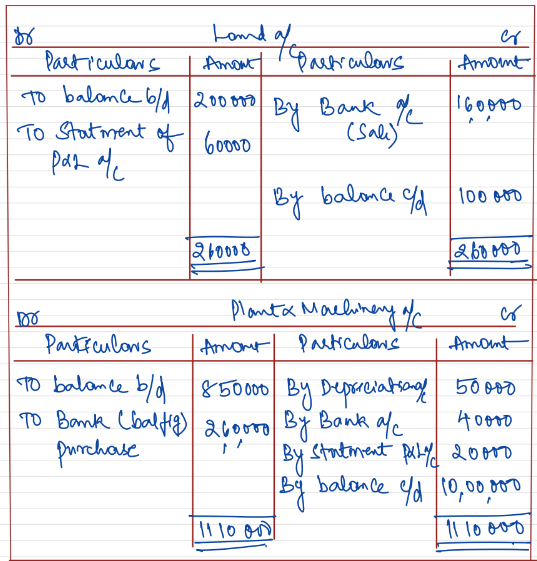 Dr Land a/c Cr
Particulars Amount Particulars Amount
To balance b/d 200000 By Bank a/c 160000
(Sale)
To Statment of 60000
P&L a/c
By balance c/d 100000
260000 260000
Dr Plant & Machinery a/c Cr
Particulars Amount Particulars Amount
To balance b/d 850000 By Depreciation a/c 50000
To Bank (balfig) 260000 By Bank a/c 40000
purchase By Statment P&L a/c 20000
By balance c/d 10,00,000
1110000 1110000